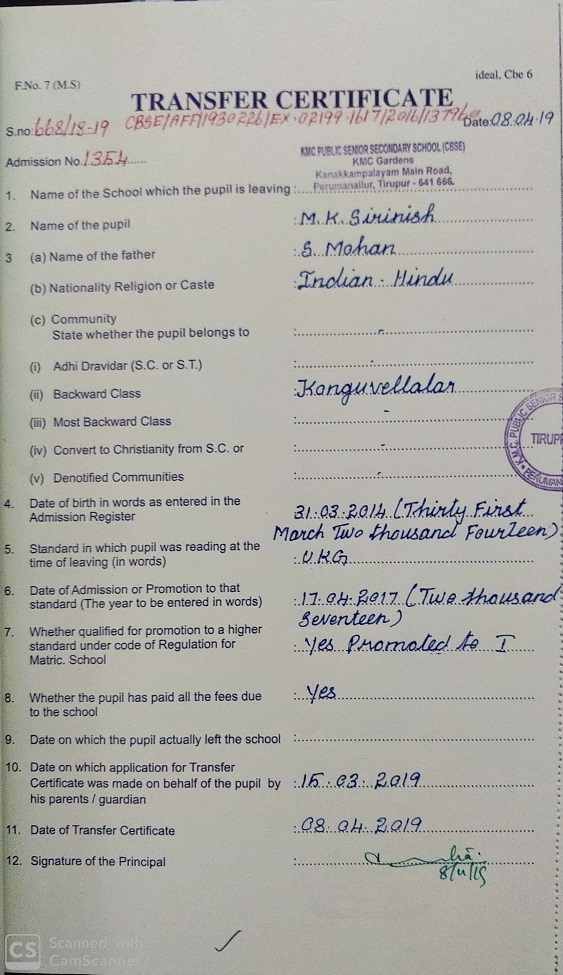 F.No. 7 (M.S)
ideal, Cbe 6
TRANSFER CERTIFICATE
S.no: 668/18-19 CBSE/AFF/1930226/EX-02199-1617/2016/13796 Date: 08.04.19
Admission No. 1354
KMC PUBLIC SENIOR SECONDARY SCHOOL (CBSE)
KMC Gardens
Kanakkampalayam Main Road,
Perumanallur, Tirupur - 641 666.
1. Name of the School which the pupil is leaving :
2. Name of the pupil : M.K. Sirinish
3 (a) Name of the father : S. Mohan
(b) Nationality Religion or Caste : Indian - Hindu
(c) Community
State whether the pupil belongs to : -
(i) Adhi Dravidar (S.C. or S.T.) : -
(ii) Backward Class : Konguvellalar
(iii) Most Backward Class : -
(iv) Convert to Christianity from S.C. or : -
(v) Denotified Communities : -
K.M.C. PUBLIC SENIOR S
TIRUP
PERUMAN
4. Date of birth in words as entered in the : 31.03.2014 (Thirty First
Admission Register March Two thousand Fourteen)
5. Standard in which pupil was reading at the
time of leaving (in words) : UKG
6. Date of Admission or Promotion to that : 17.04.2017 (Two thousand
standard (The year to be entered in words) Seventeen)
7. Whether qualified for promotion to a higher
standard under code of Regulation for : Yes Promoted to I
Matric. School
8. Whether the pupil has paid all the fees due : Yes
to the school
9. Date on which the pupil actually left the school :
10. Date on which application for Transfer
Certificate was made on behalf of the pupil by : 15.03.2019
his parents / guardian
11. Date of Transfer Certificate : 08.04.2019
12. Signature of the Principal :
8/4/19
CS Scanned with
CamScanner